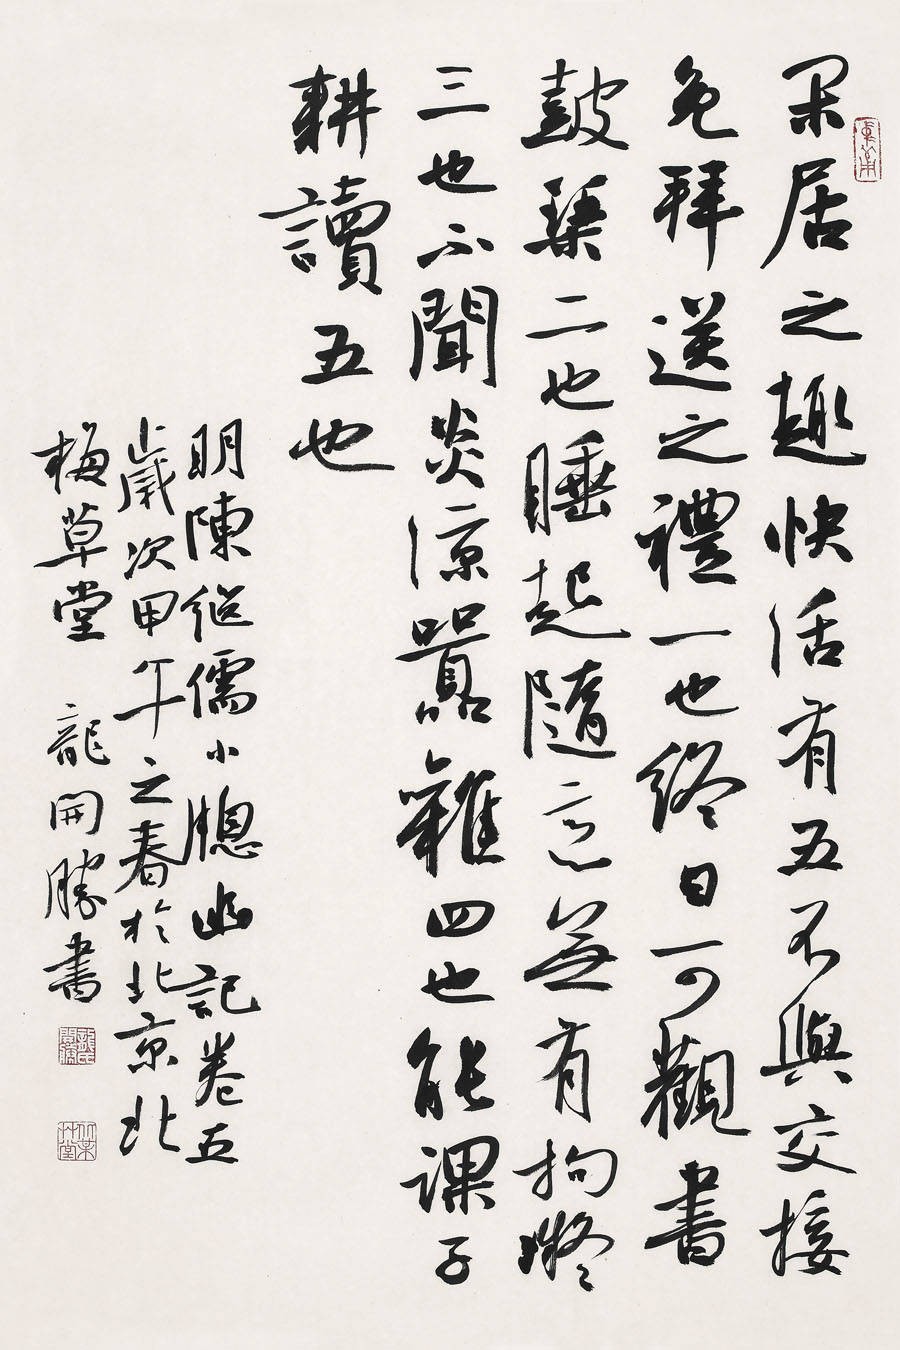 閑居之趣快活有五不與交接
免拜送之禮一也終日可觀書
鼓琴二也睡起隨意無有拘礙
三也不聞炎凉囂雜四也能課子
耕讀五也
明陳继儒小牕幽記卷五
歲次甲午之春於北京北
梅草堂 龍開勝書